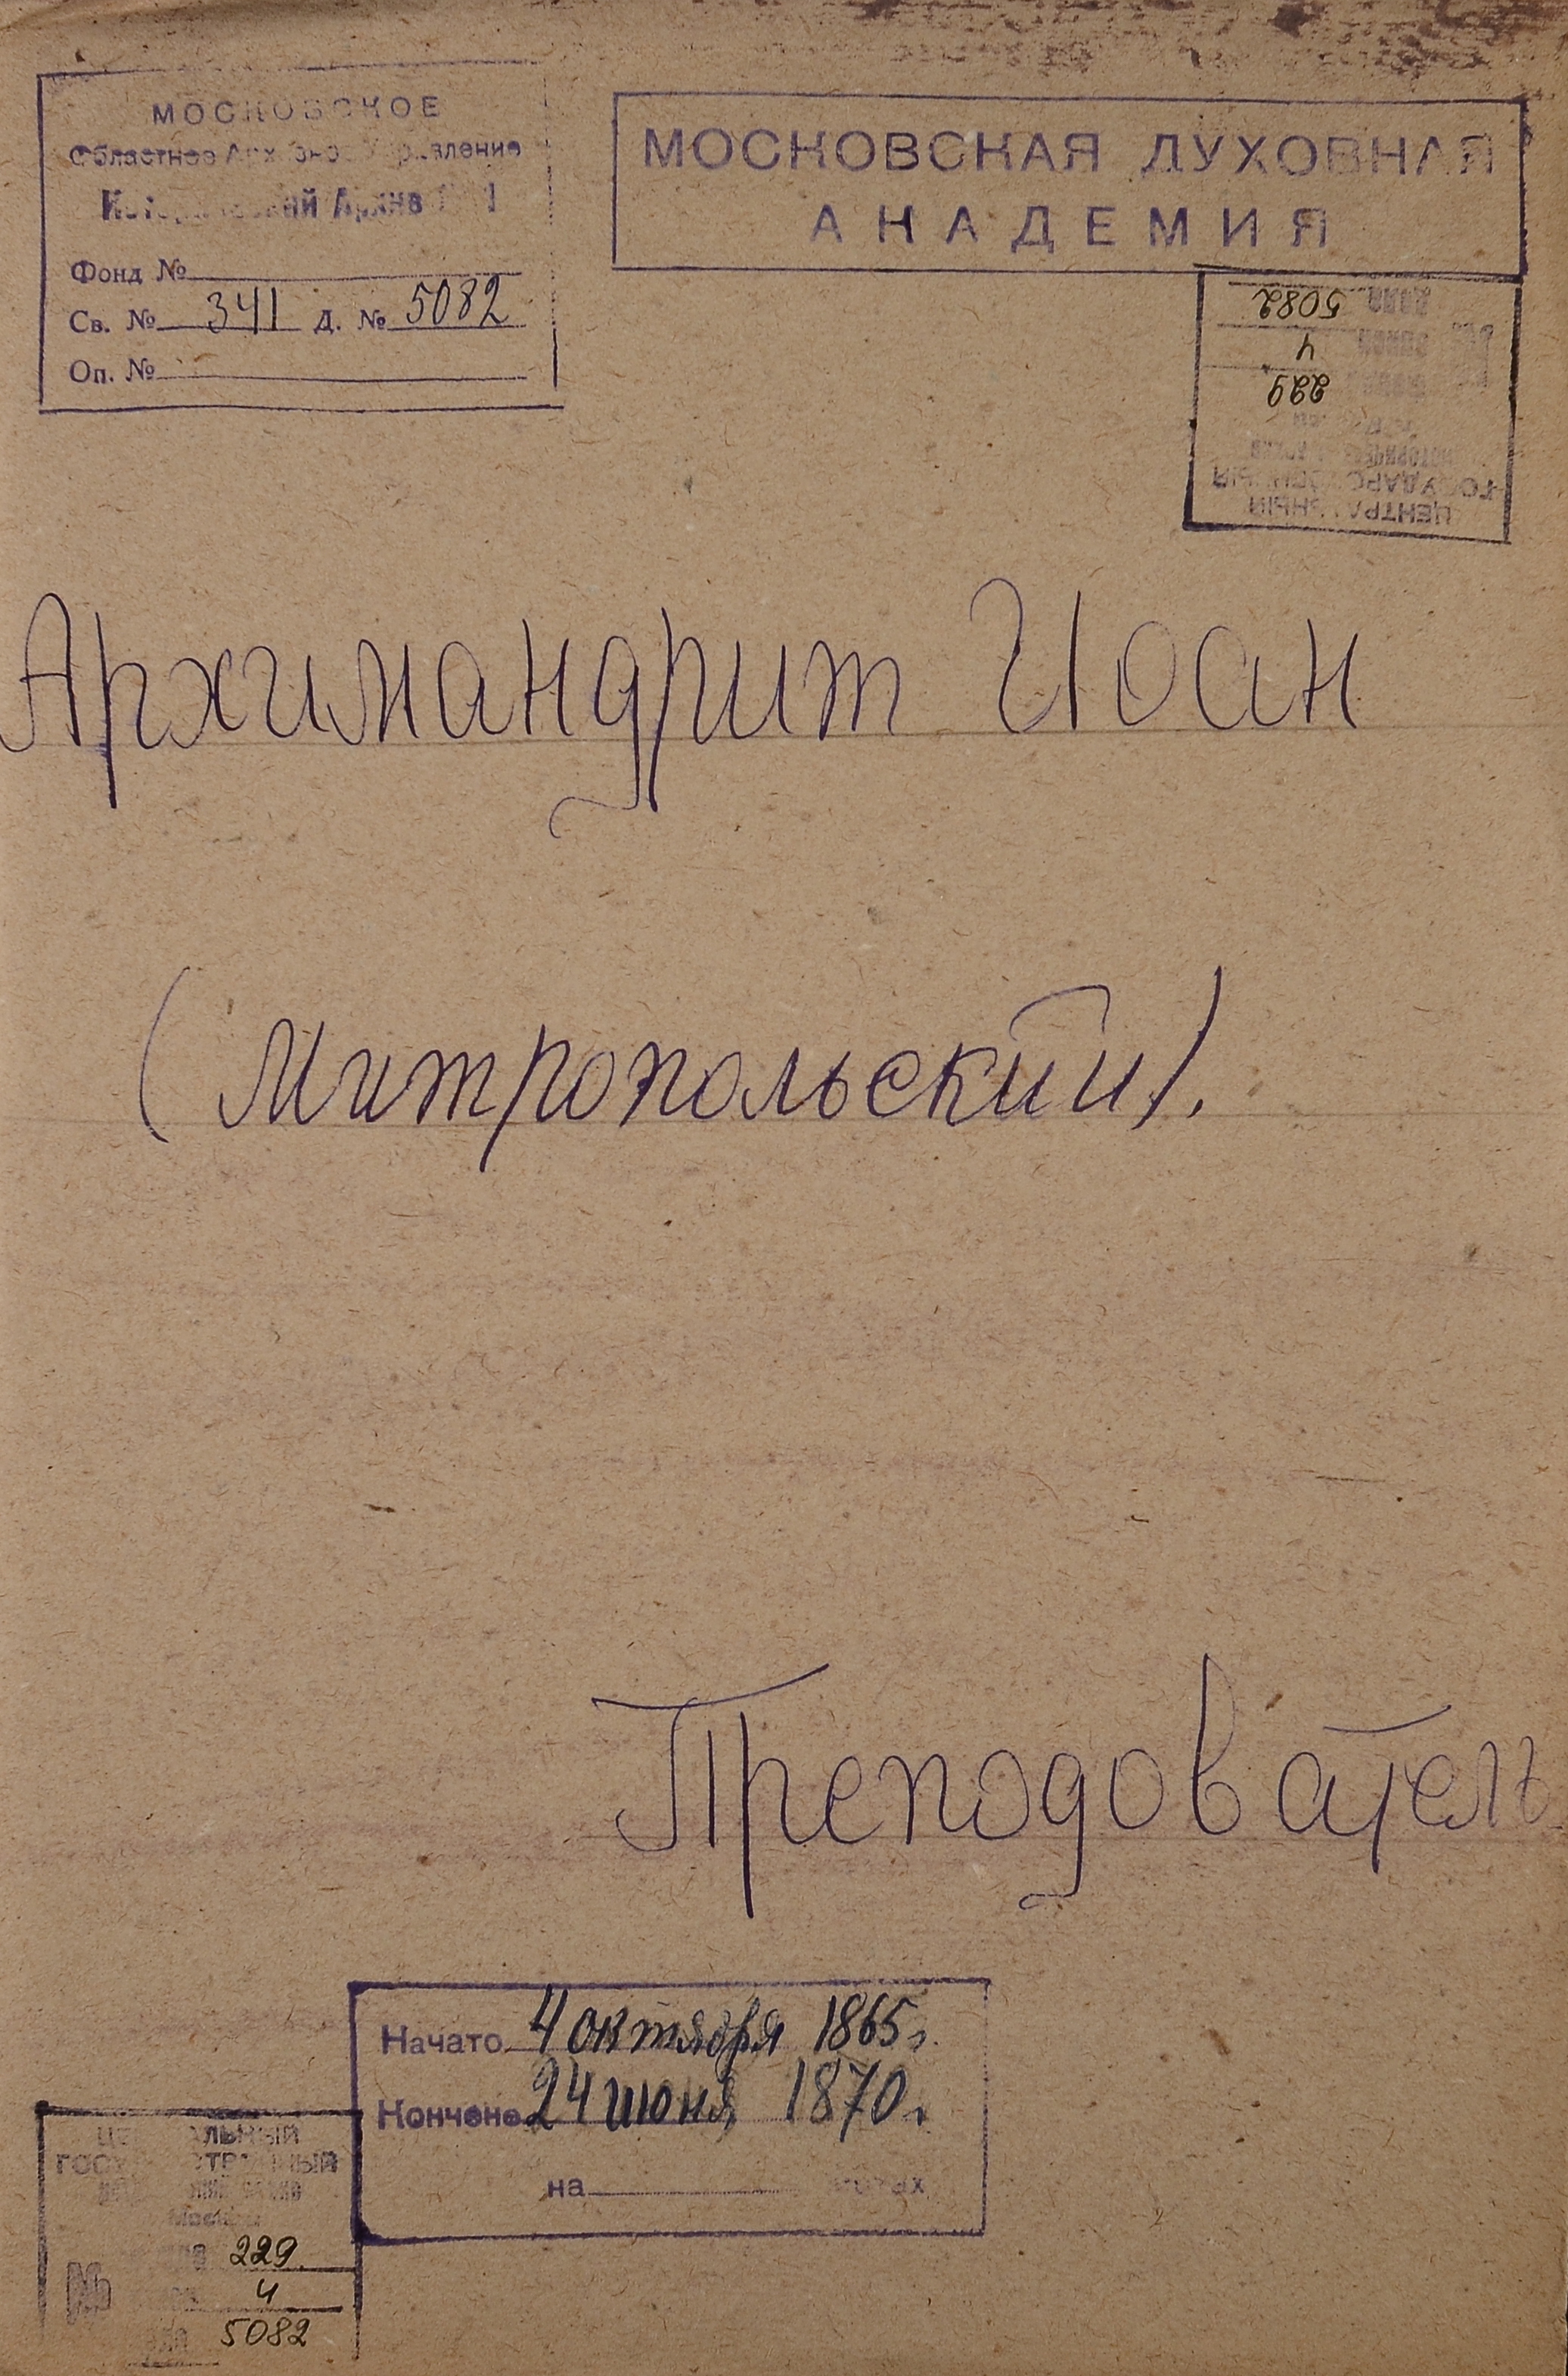 МОСКОВСКОЕ
Областное Архивное Управление
Исторический Архив
Фонд №
Св. № 341 Д. № 5082
Оп. №
МОСКОВСКАЯ ДУХОВНАЯ
АКАДЕМИЯ
ЦЕНТРАЛЬНЫЙ
ГОСУДАРСТВЕННЫЙ
229
4
5082
Архимандрит Иоан
(Митропольский).
Преподователь
Начато 4 октября 1865 г.
Кончено 24 июня 1870 г.
на
ЦЕНТРАЛЬНЫЙ
ГОСУДАРСТВЕННЫЙ
Москвы
229
№ 4
5082